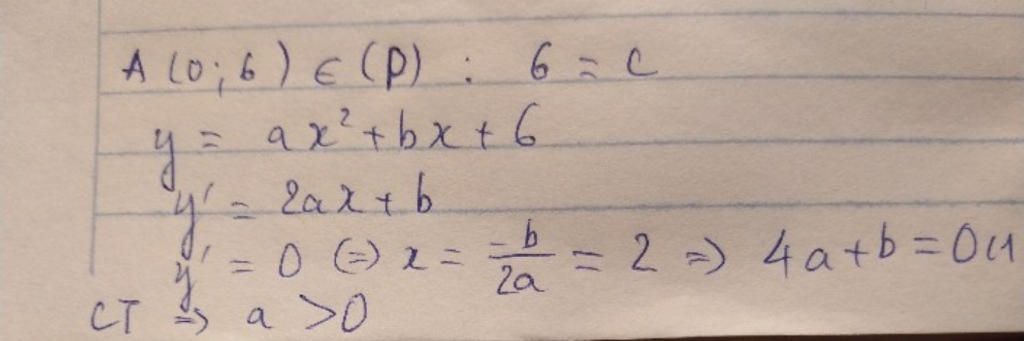 A (0; 6) ∈ (P) : 6 = c
y = ax² + bx + 6
y' = 2ax + b
y' = 0 (=) x = -b/2a = 2 => 4a + b = 0 (1
CT => a > 0